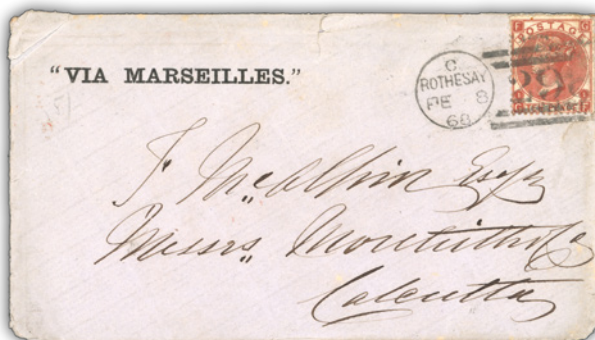 "VIA MARSEILLES."
C
ROTHESAY
DE 8
68
POSTAGE
J. McAlpin Esqr
Messrs Monteith & Co
Calcutta